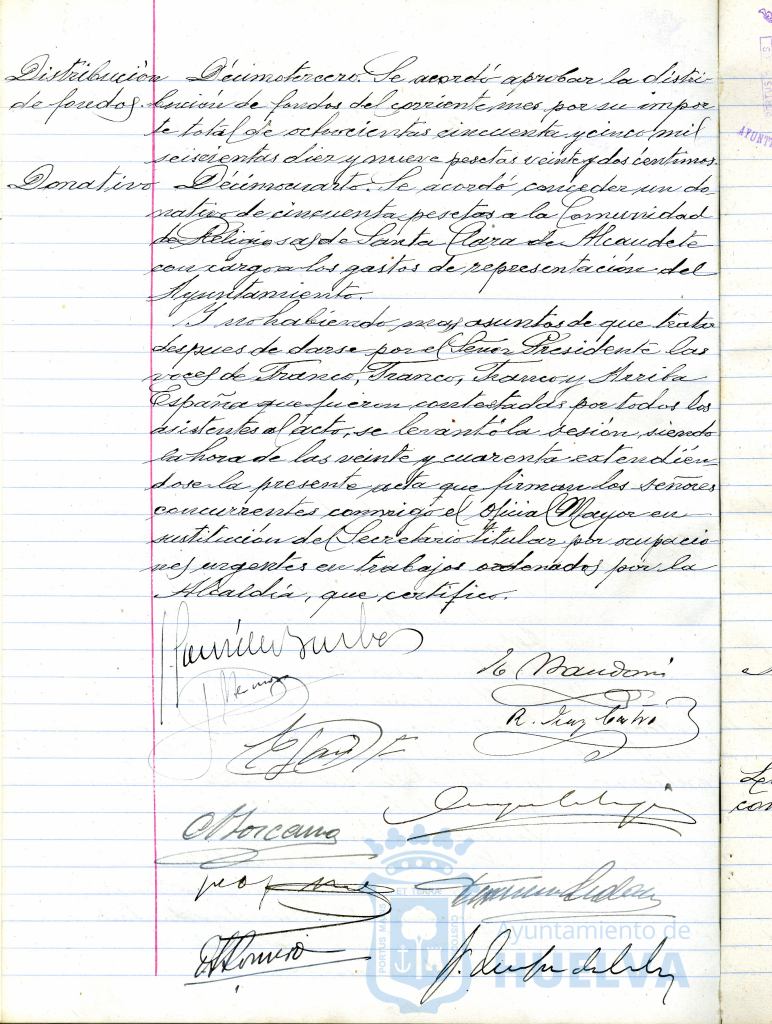 Distribución
de fondos.
Décimotercero. Se acordó aprobar la distri-
bución de fondos del corriente mes por su impor-
te total de ochocientas cincuenta y cinco mil
seiscientas diez y nueve pesetas veinte y dos centimos.
Donativo
Décimocuarto. Se acordó conceder un do-
nativo de cincuenta pesetas a la Comunidad
de Religiosas de Santa Clara de Alcaudete
con cargo a los gastos de representación del
Ayuntamiento.
Y no habiendo mas asuntos de que tratar
despues de darse por el Señor Presidente las
voces de Franco, Franco, Franco y Arriba
España que fueron contestadas por todos los
asistentes al acto, se levantó la sesión, siendo
la hora de las veinte y cuarenta extendién-
dose la presente acta que firman los señores
concurrentes conmigo el Oficial Mayor en
sustitución del Secretario titular por ocupacio-
nes urgentes en trabajos ordenados por la
Alcaldía, que certifico.
R. Castro
Ayuntamiento de
HUELVA
PORTUS MARIS ET TERRAE CUSTODIA